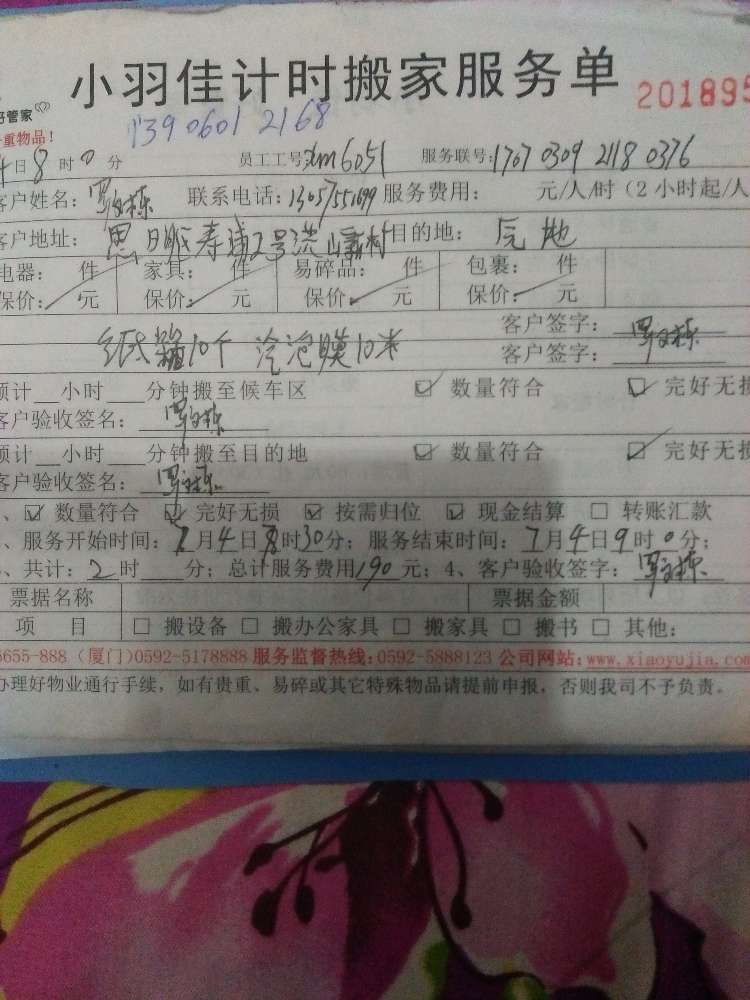 小羽佳计时搬家服务单
201895
好管家
重物品！
13906012168
4日8时0分 员工工号:xm6051 服务联号:1707 0309 2118 0376
客户姓名: 联系电话: 服务费用: 元/人/时（2小时起/人
客户地址: 思明 寿浦2号洪山新村 目的地:
电器: 件 家具: 件 易碎品: 件 包裹: 件
保价: 元 保价: 元 保价: 元 保价: 元
客户签字:
纸箱10个 汽泡膜10米
客户签字:
预计__小时__分钟搬至候车区 ☑数量符合 ☑完好无损
客户验收签名:
预计__小时__分钟搬至目的地 ☑数量符合 ☑完好无损
客户验收签名:
、☑数量符合 ☑完好无损 ☑按需归位 ☑现金结算 □转账汇款
、服务开始时间: 7月4日8时30分; 服务结束时间: 7月4日9时0分;
、共计: 2时 分; 总计服务费用190元; 4、客户验收签字:
票据名称 票据金额
项 目 □搬设备 □搬办公家具 □搬家具 □搬书 □其他:
5655-888 (厦门)0592-5178888 服务监督热线:0592-5888123 公司网站:www.xiaoyujia.com
办理好物业通行手续，如有贵重、易碎或其它特殊物品请提前申报，否则我司不予负责。